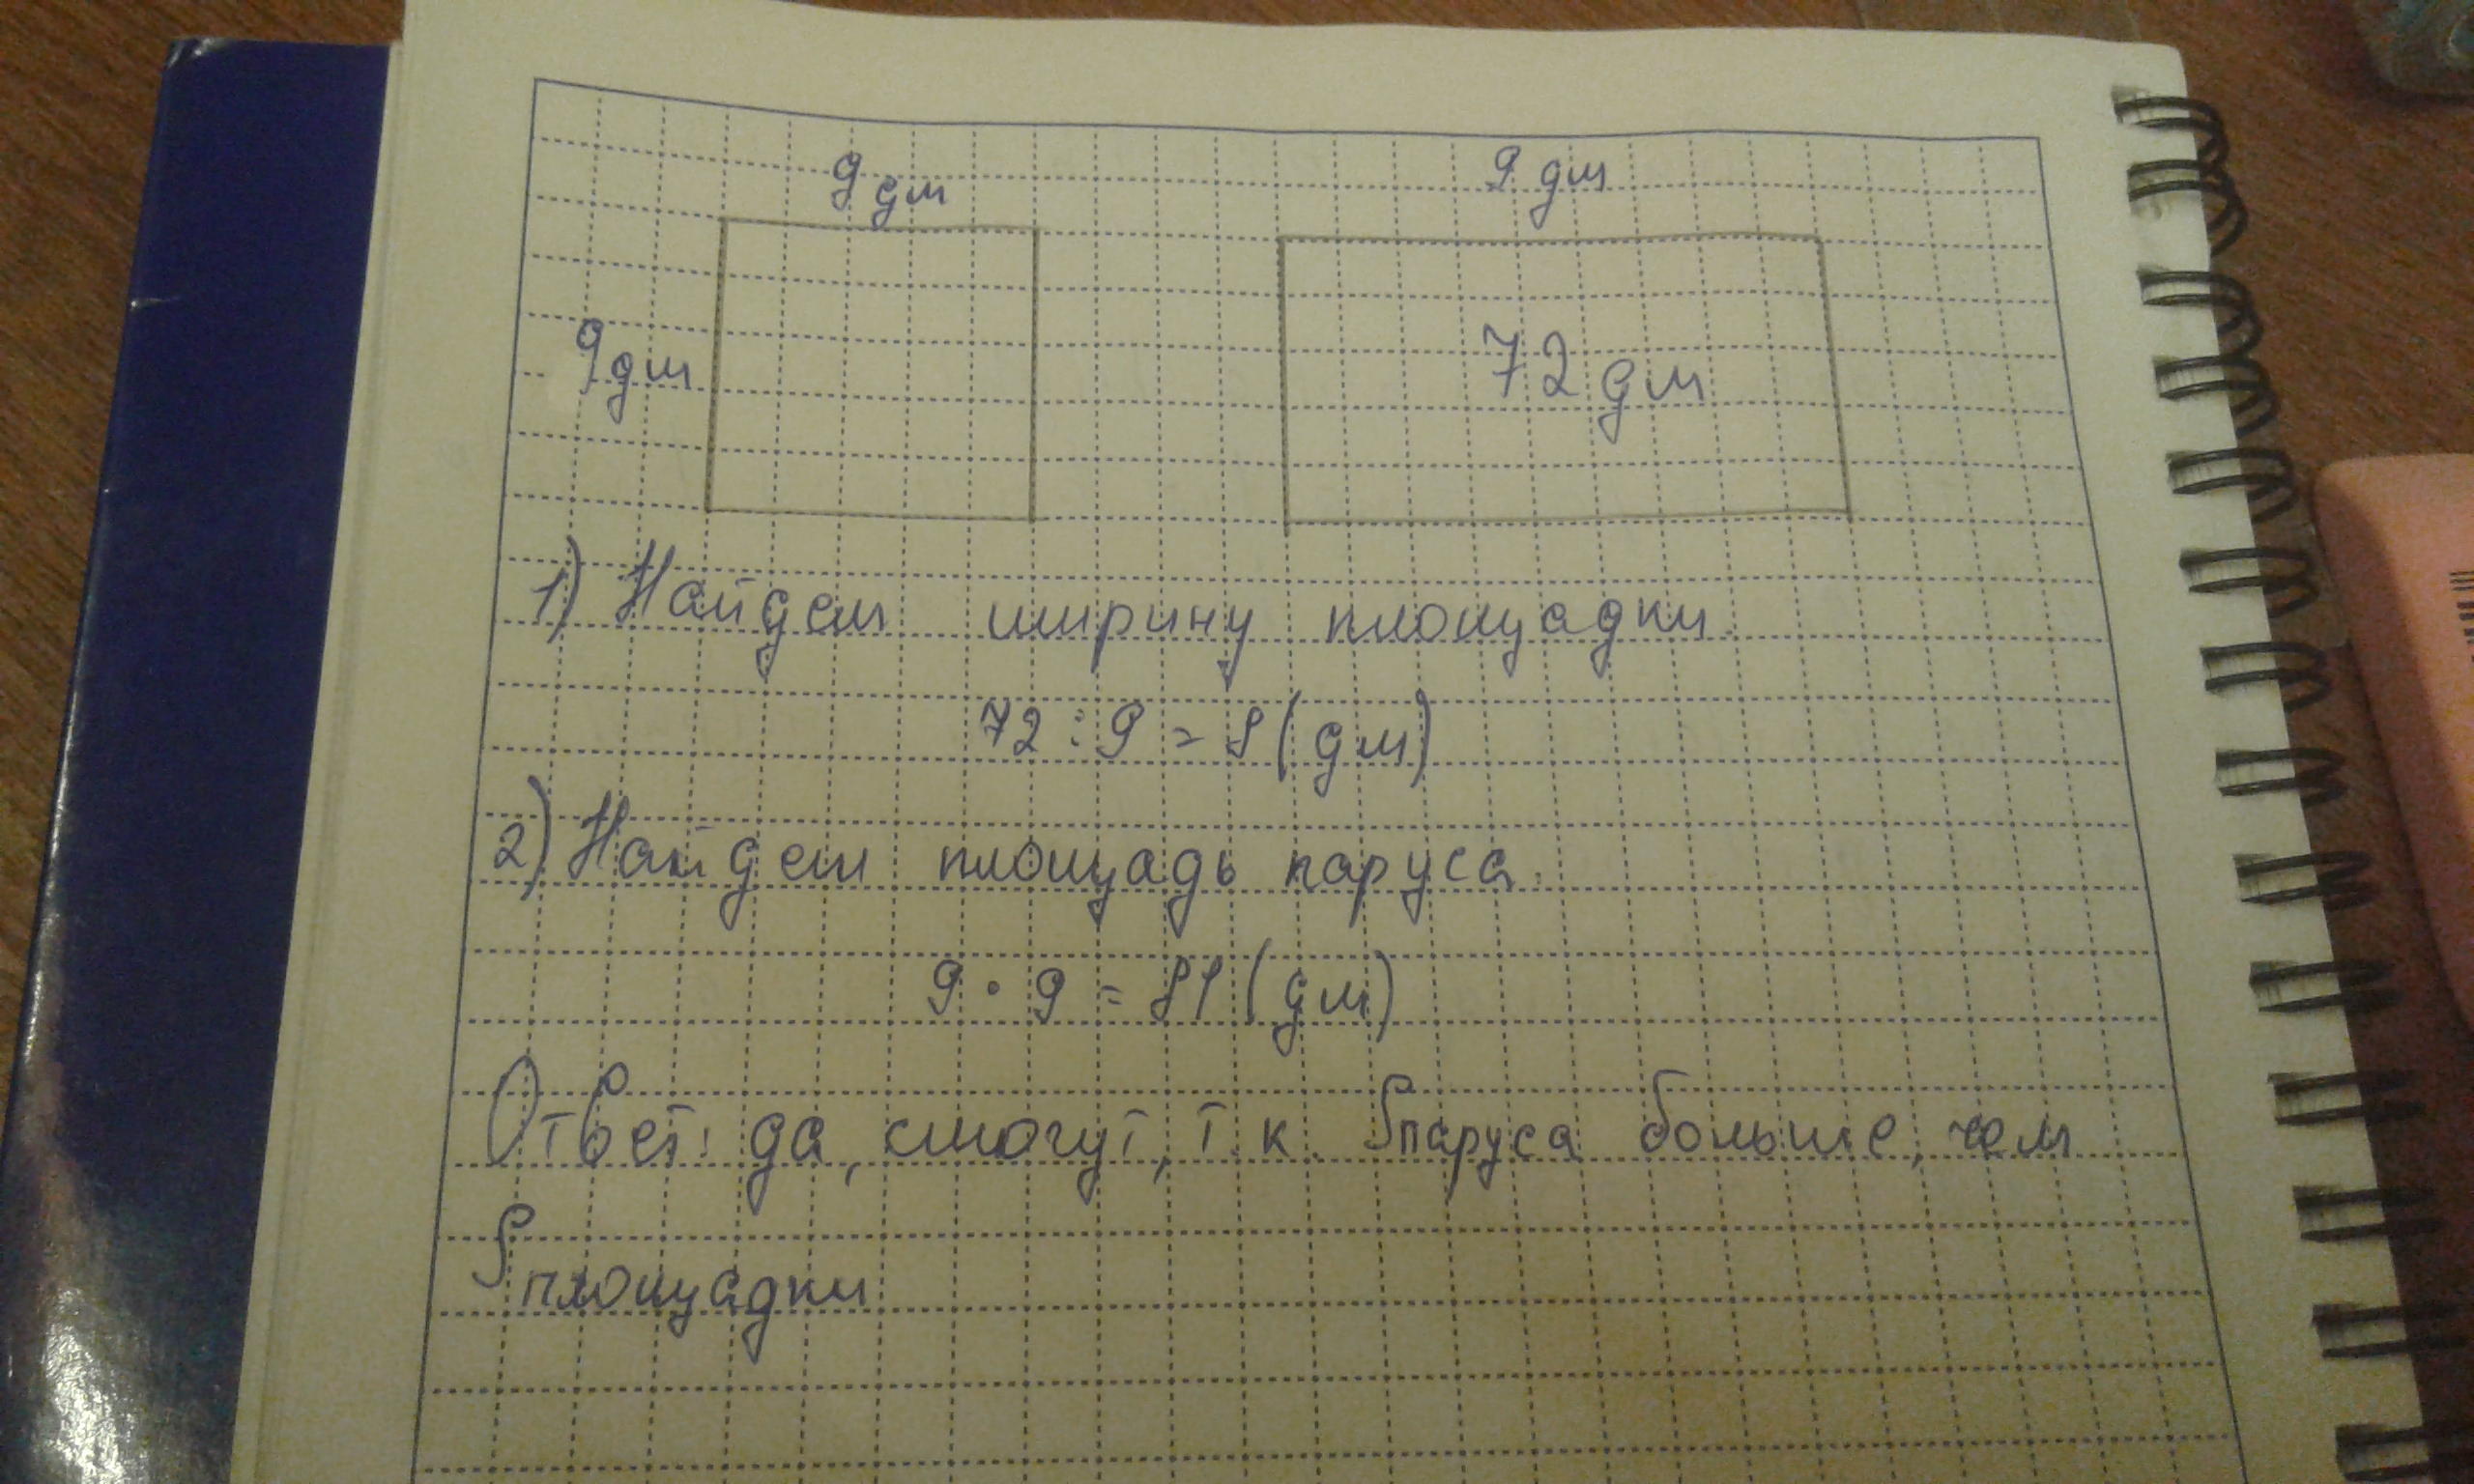 9 дм 9 дм
9 дм 72 дм
1) Найдем ширину площадки.
72 : 9 = 8 (дм)
2) Найдем площадь паруса.
9 · 9 = 81 (дм)
Ответ: да, смогут, т.к. Sпаруса больше, чем
Sплощадки